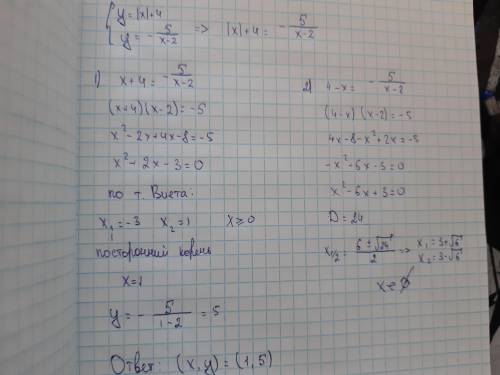 { y=|x|+4
y=-5/(x-2) => |x|+4 = -5/(x-2)
1) x+4=-5/(x-2)
(x+4)(x-2)=-5
x²-2x+4x-8=-5
x²-2x-3=0
по т. Виета:
x₁=-3 x₂=1 x≥0
посторонний корень
x=1
y=-5/(1-2)=5
Ответ: (x,y)=(1,5)
2) 4-x=-5/(x-2)
(4-x)(x-2)=-5
4x-8-x²+2x=-5
-x²-6x-3=0
x²-6x+3=0
D=24
x₁/₂=(6±√24)/2 => x₁=3+√6
x₂=3-√6
x∈∅